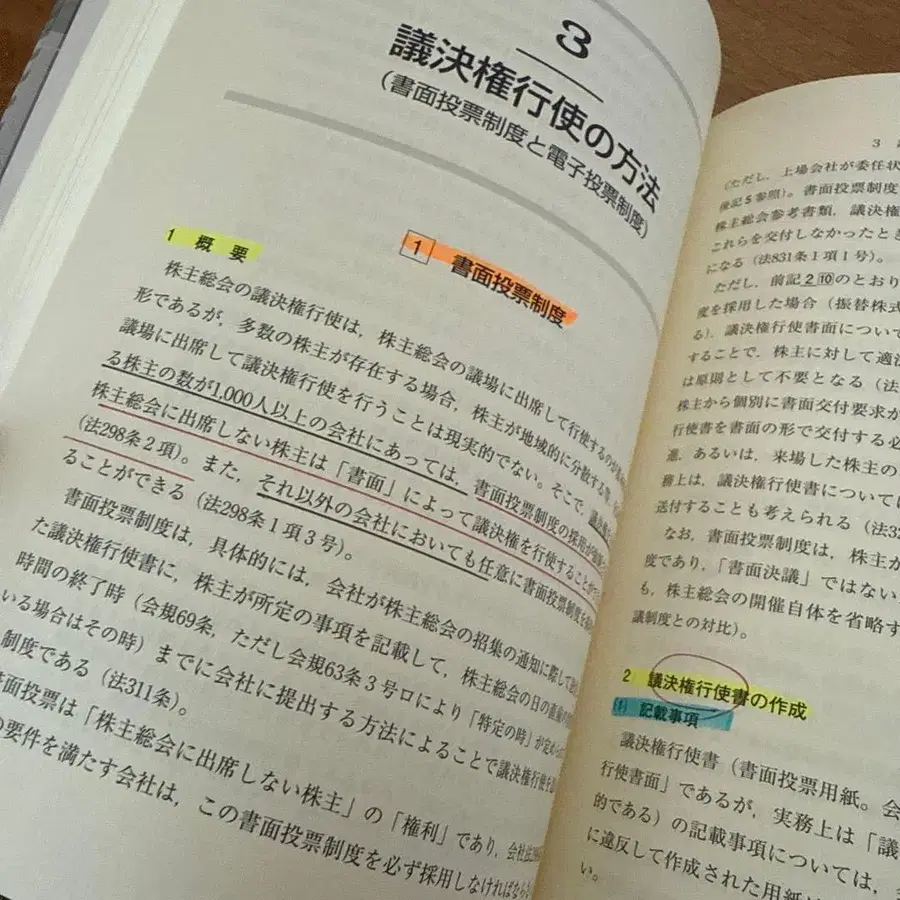 3
議決権行使の方法
(書面投票制度と電子投票制度)
1 書面投票制度
1 概 要
株主総会の議決権行使は，株主総会の議場に出席して行使するのが
形であるが，多数の株主が存在する場合，株主が地域的に分散する等
議場に出席して議決権行使を行うことは現実的でない。そこで，議決権
る株主の数が1,000人以上の会社にあっては，書面投票制度の採用が
株主総会に出席しない株主は「書面」によって議決権を行使することが
(法298条2項)。また，それ以外の会社においても任意に書面投票制度を
ることができる（法298条1項3号）。
書面投票制度は，具体的には，会社が株主総会の招集の通知に際して
た議決権行使書に，株主が所定の事項を記載して，株主総会の日の直前の
時間の終了時（会規69条，ただし会規63条3号ロにより「特定の時」が
いる場合はその時）までに会社に提出する方法によることで議決権行使を
制度である（法311条）。
書面投票は「株主総会に出席しない株主」の「権利」であり，会社法
の要件を満たす会社は，この書面投票制度を必ず採用しなければなら
3
（ただし，上場会社が委任状
後記5参照）。書面投票制度
株主総会参考書類，議決権
これらを交付しなかったとき
になる（法831条1項1号）。
ただし，前記2⑩のとおり
度を採用した場合（振替株式
る）．議決権行使書面について
することで，株主に対して適法
は原則として不要となる（法
株主から個別に書面交付要求が
行使書を書面の形で交付する必
進，あるいは，来場した株主の
務上は，議決権行使書については
送付することも考えられる（法32
なお，書面投票制度は，株主が
度であり，「書面決議」ではない
も，株主総会の開催自体を省略す
議制度との対比）。
2 議決権行使書の作成
(1) 記載事項
議決権行使書（書面投票用紙。会
行使書面」であるが，実務上は「議
的である）の記載事項については，
に違反して作成された用紙
い。